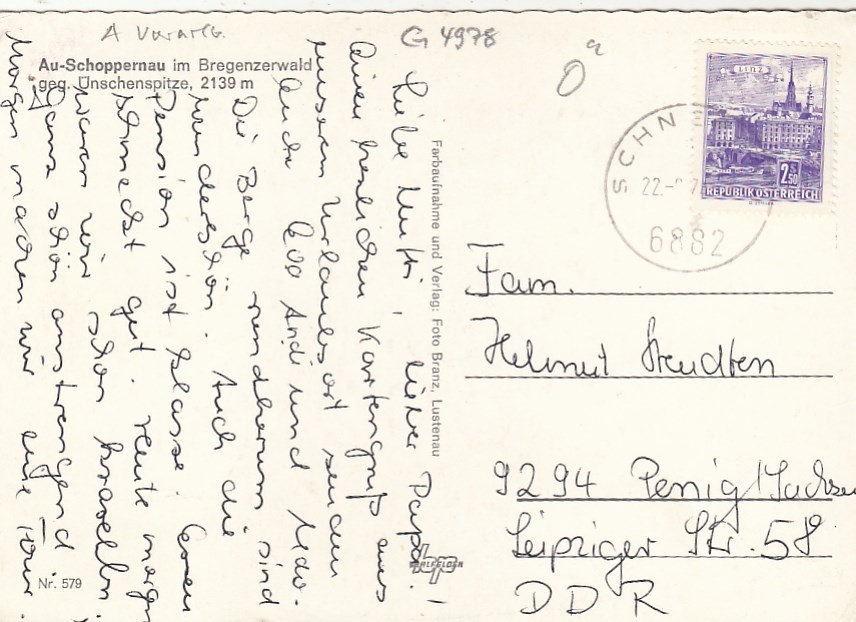 A Vorarlb.
G 4978
Au-Schoppernau im Bregenzerwald
geg. Ünschenspitze, 2139 m
Liebe Mutti, lieber Papa!
Einen herzlichen Kartengruß aus
unserem Urlaubsort senden
Euch Andi und Udo.
Die Berge rundherum sind
wunderschön. Auch die
Pension ist klasse. Essen
schmeckt gut. Heute morgen
waren wir schon
Ganz schön anstrengend.
Morgen machen wir eine Tour
Farbaufnahme und Verlag: Foto Branz, Lustenau
Nr. 579
LINZ
2.50
S
REPUBLIK ÖSTERREICH
SCHNE
22.-
6882
Fam.
Helmut Steudten
9294 Penig/Sachsen
Leipziger Str. 58
DDR